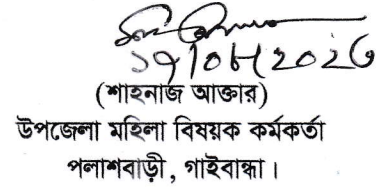 (শাহনাজ আক্তার)
উপজেলা মহিলা বিষয়ক কর্মকর্তা
পলাশবাড়ী, গাইবান্ধা।